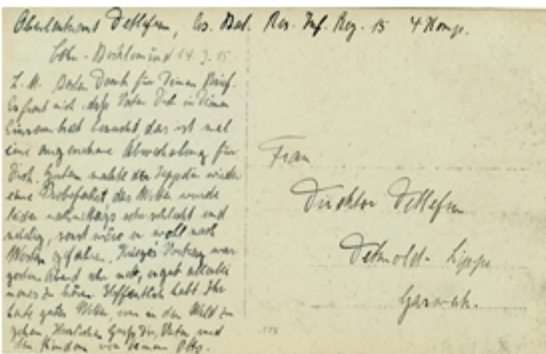 Oberleutnant Detlefsen, Ers. Bat. Res. Inf. Reg. 15 4 Komp.
14.3.15
L. M. Besten Dank für Deinen Brief.
Es freut mich, dass Vater Dich in Deiner
Einsamkeit besucht, das ist mal
eine angenehme Abwechslung für
Dich. Gestern machte der Zeppelin wieder
eine Probefahrt, das Wetter wurde
leider nachmittags sehr schlecht und
sonst wäre er wohl nach
gefahren. Vortrag war
gestern Abend sehr nett, es gab allerlei
neues zu hören. Hoffentlich habt Ihr
heute gutes Wetter, um in den Wald zu
gehen. Herzlichen Gruss Dir, Vater und
den Kindern von Deinem Otto.
Frau
Direktor Detlefsen
Detmold-Lippe